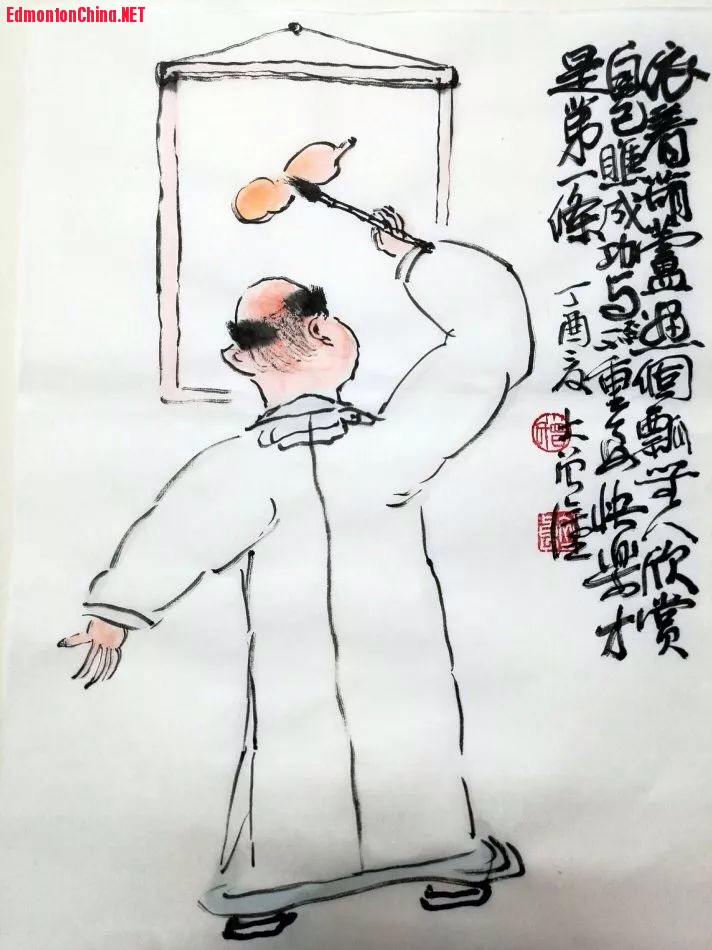 EdmontonChina.NET
依着葫蘆画個瓢無人欣賞
自己瞧成功与否不重要快樂才
是第一條
丁酉夏